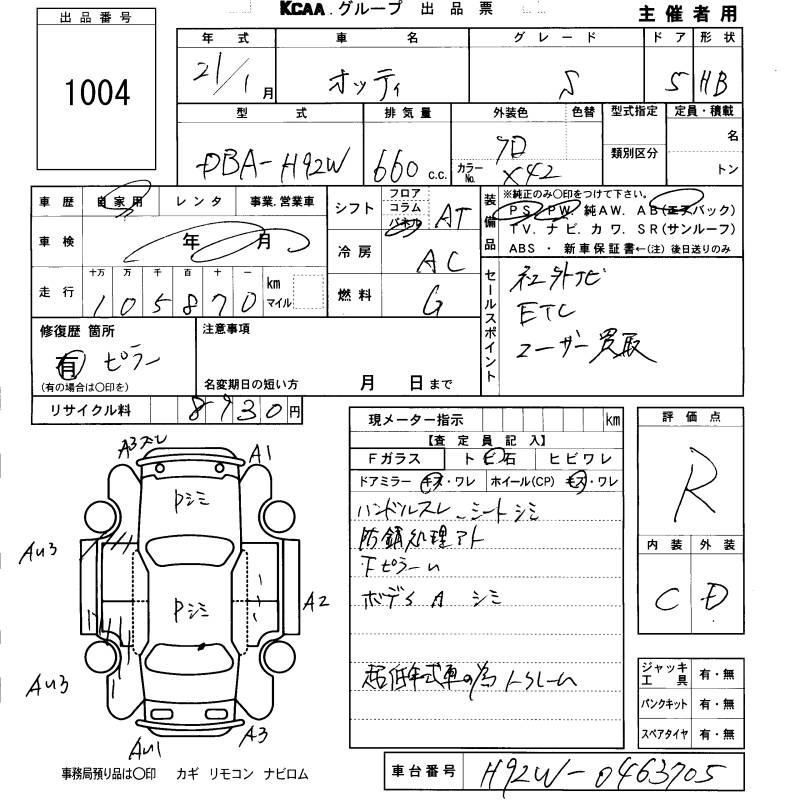 KCAA.グループ 出品票
主催者用
出品番号
1004
年式 車名 グレード ドア 形状
21/1月 オッティ S 5 HB
型式 排気量 外装色 色替 型式指定 定員・積載
DBA-H92W 660 c.c. クロ 類別区分 名
カラーNo. X42 トン
車歴 自家用 レンタ 事業.営業車
シフト フロア コラム パネル AT
装備品
※純正のみ○印をつけて下さい。
PS. PW. 純AW. AB(エアバック)
TV. ナビ. カワ. SR(サンルーフ)
ABS ・ 新車保証書←(注) 後日送りのみ
車検 年 月
冷房 AC
走行 十万 万 千 百 十 一 km マイル
105870
燃料 G
セールスポイント
社外ナビ
ETC
ユーザー買取
修復歴 箇所
有 ピラー
(有の場合は○印を)
注意事項
名変期日の短い方 月 日まで
リサイクル料 8930円
現メーター指示 km
【査定員記入】
Fガラス ト ビ 石 ヒビワレ
ドアミラー キズ・ワレ ホイール(CP) キズ・ワレ
ハンドルスレ シートシミ
防錆処理アト
下ピラーm
シミ
評価点
R
内装 外装
C D
ジャッキ工具 有・無
パンクキット 有・無
スペアタイヤ 有・無
A3ズレ
A1
Pシミ
AU3
A2
Pシミ
AU3
AU1
A3
事務局預り品は○印 カギ リモコン ナビロム
車台番号 H92W-0463705